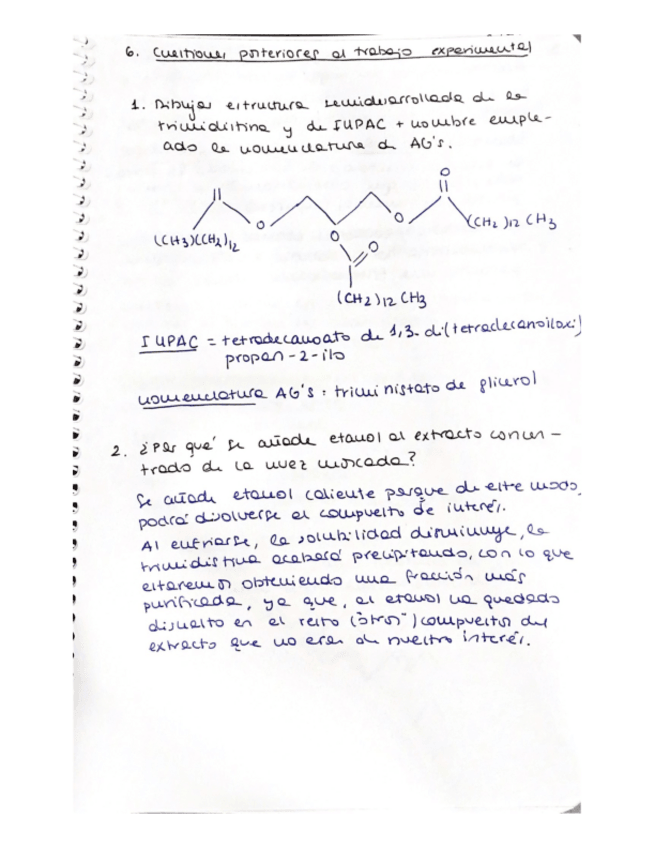 6. Cuestiones posteriores al trabajo experimental
1. Dibujar estructura semidesarrollada de la
trimiristina y de IUPAC + nombre emple-
ado la nomenclatura de AG's.
O
O
O
O
O
(CH3)(CH2)12
(CH2)12 CH3
(CH2)12 CH3
IUPAC = tetradecanoato de 1,3-di(tetradecanoiloxi)
propan-2-ilo
nomenclatura AG's: triministato de glicerol
2. ¿Por qué se añade etanol al extracto concen-
trado de la nuez moscada?
Se añade etanol caliente porque de este modo,
podrá disolverse el compuesto de interés.
Al enfriarse, la solubilidad disminuye, la
trimidistina acabará precipitando, con lo que
estaremos obteniendo una fracción más
purificada, ya que, el etanol ha quedado
disuelto en el resto (otros) compuestos del
extracto que no eran de nuestro interés.